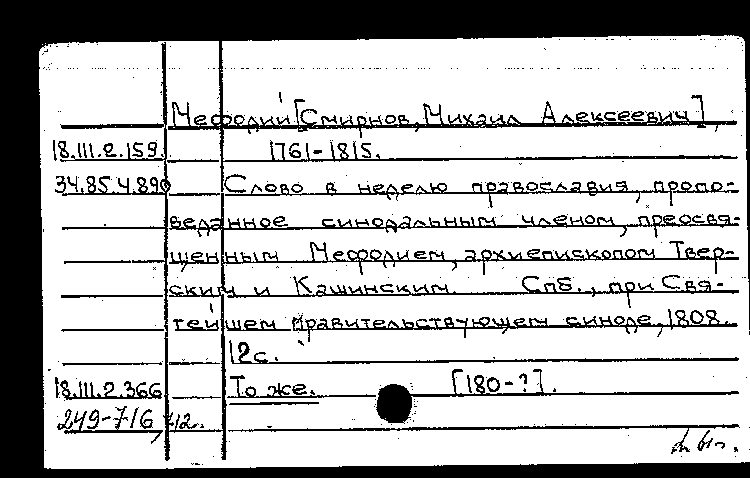 Мефодий [Смирнов, Михаил Алексеевич],
18.III.2.159. 1761-1815.
34.85.4.890 Слово в неделю православия, пропо-
веданное синодальным членом, преосвя-
щенным Мефодием, архиепископом Твер-
ским и Кашинским Спб., при Свя-
тейшем правительствующем синоде, 1808.
12с.
18.III.2.366 То же. [180-?].
249-716, 712.